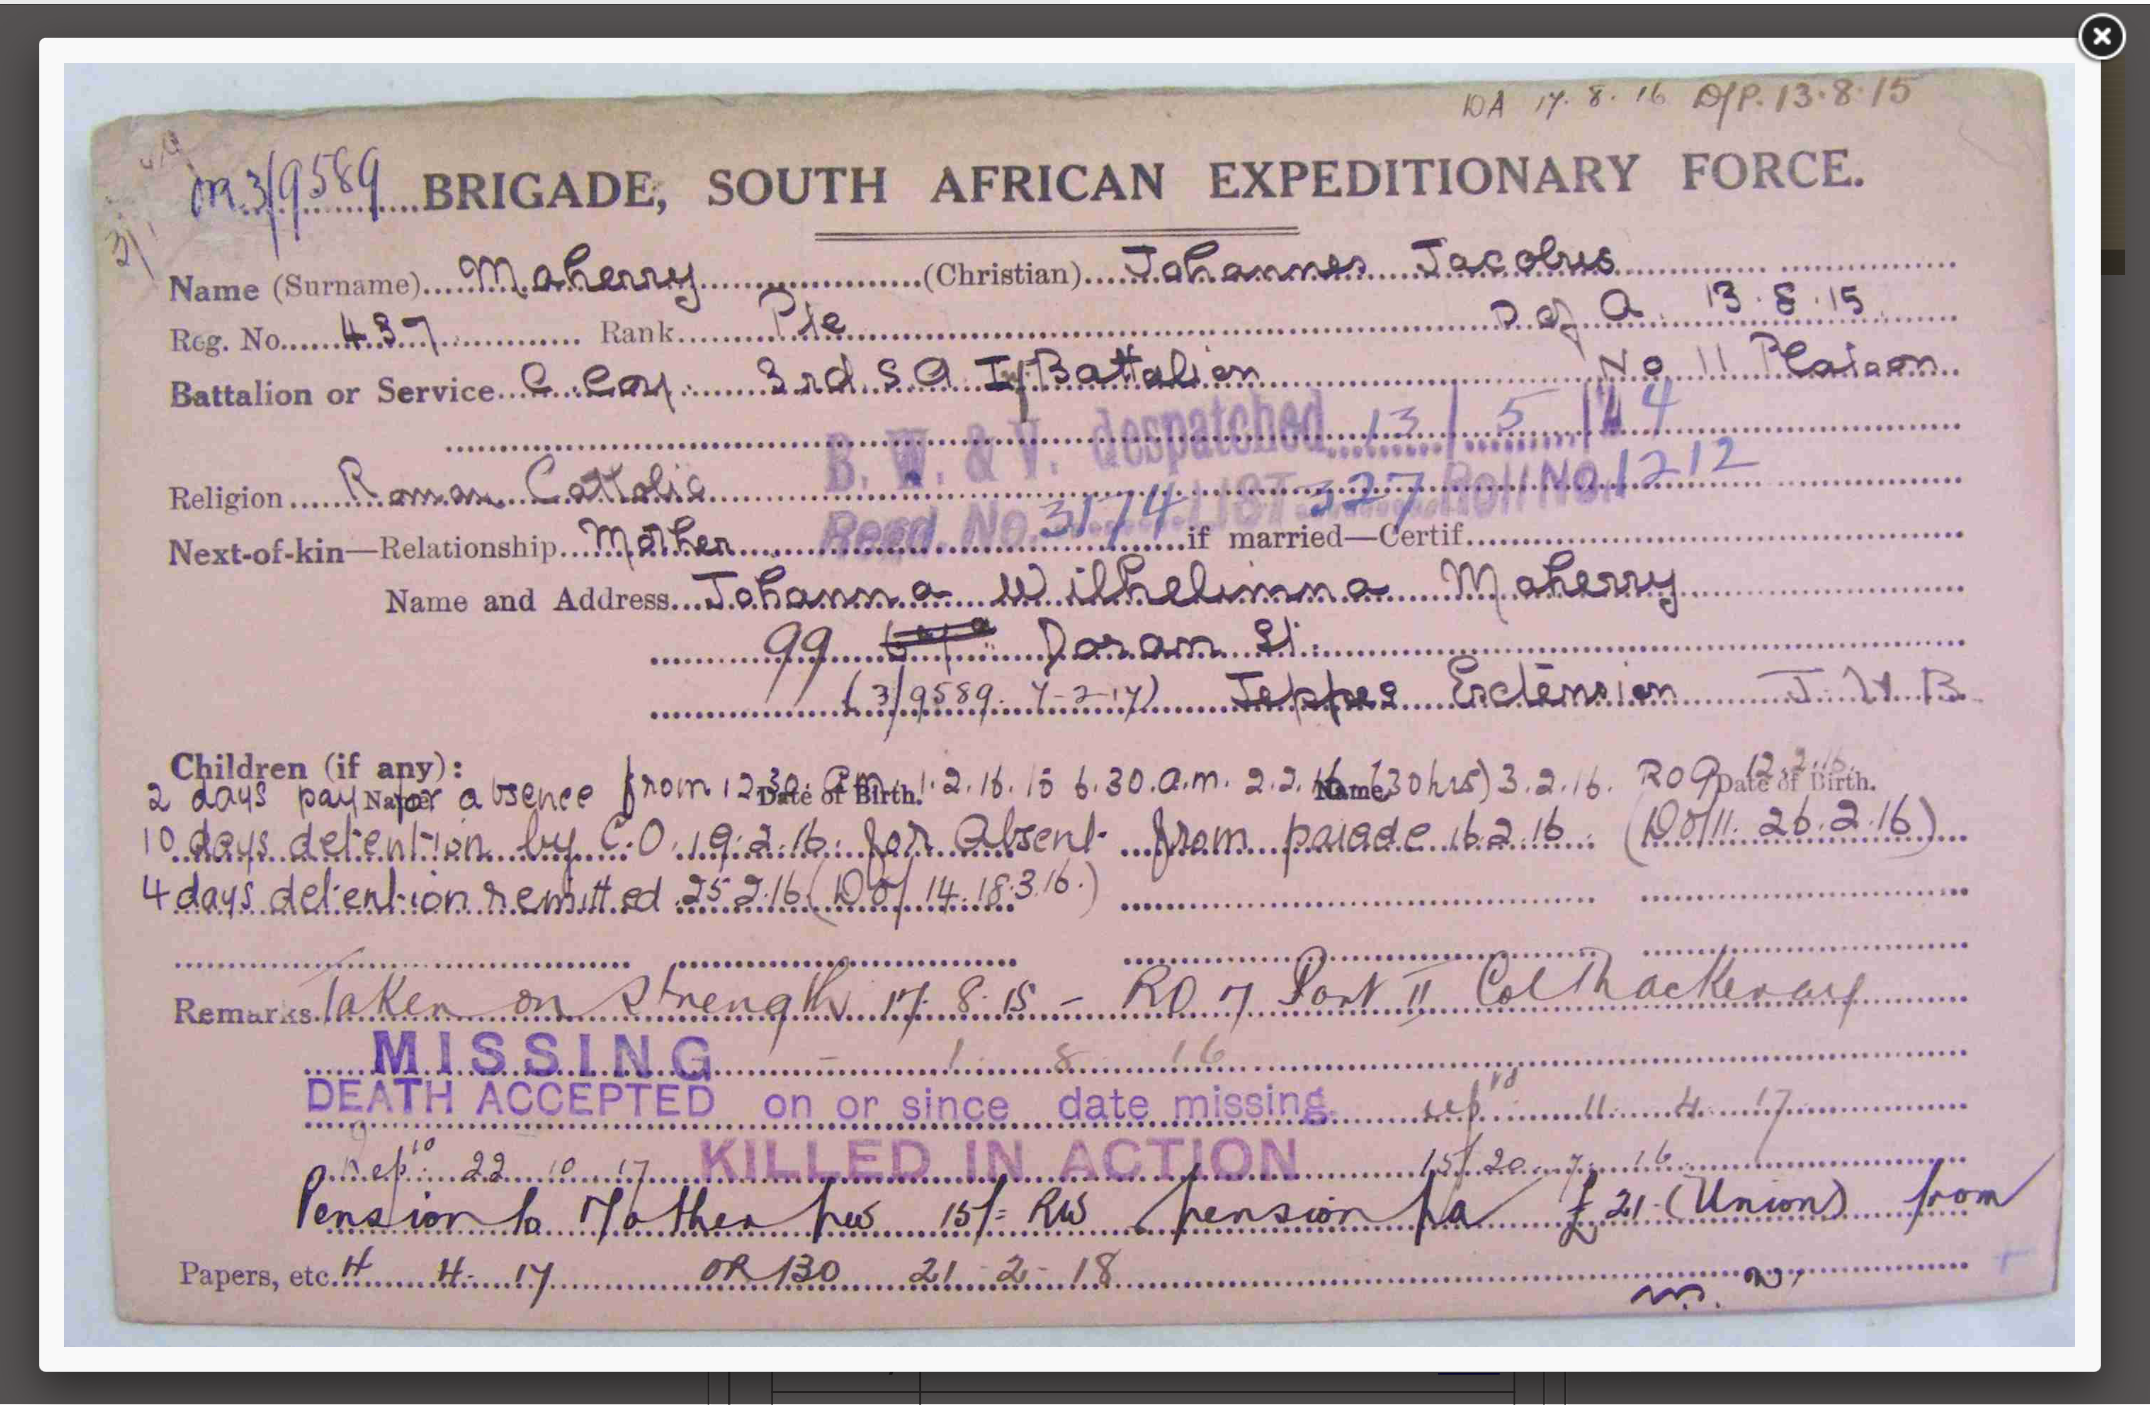 DA 17.8.16 D/P. 13.8.15
OR 3/9589 BRIGADE, SOUTH AFRICAN EXPEDITIONARY FORCE.
Name (Surname) Maherry (Christian) Johannes Jacobus
Reg. No. 437 Rank Pte D of A 13.8.15
Battalion or Service C. Coy. 3rd S A Iy Battalion No 11 Platoon
B. W. & V. despatched 13/5/24
Religion Roman Cattolic
Regd. No. 3174 LIST 327 Roll No. 1212
Next-of-kin—Relationship Mother if married—Certif.
Name and Address Johanna Wilhelimna Maherry
99 Doran St.
(3/9589. 7-2-17) Jeppes Exctension J.H.B.
Children (if any):
Name Date of Birth. Name Date of Birth.
2 days pay for absence from 12.30. A.m. 1.2.16. to 6.30.a.m. 2.2.16 (30 hrs) 3.2.16. RO 9 12.2.16.
10 days detention by C.O. 19.2.16. for Absent from parade 16.2.16. (DO/11. 26.2.16)
4 days detention remitted 25 2.16 (DO/ 14. 18.3.16.)
Remarks Taken on Strength 17.8.15 – RO 7 Part II Col Thackeray
MISSING – 1 8 16
DEATH ACCEPTED on or since date missing. repd 11 4 17
Rep 22 10 17 KILLED IN ACTION 15/20 7 16
Pension to Mother pw 15/= RW pension pa £21 (Union) from
Papers, etc. 4 4 17 OR 130 21 2 18